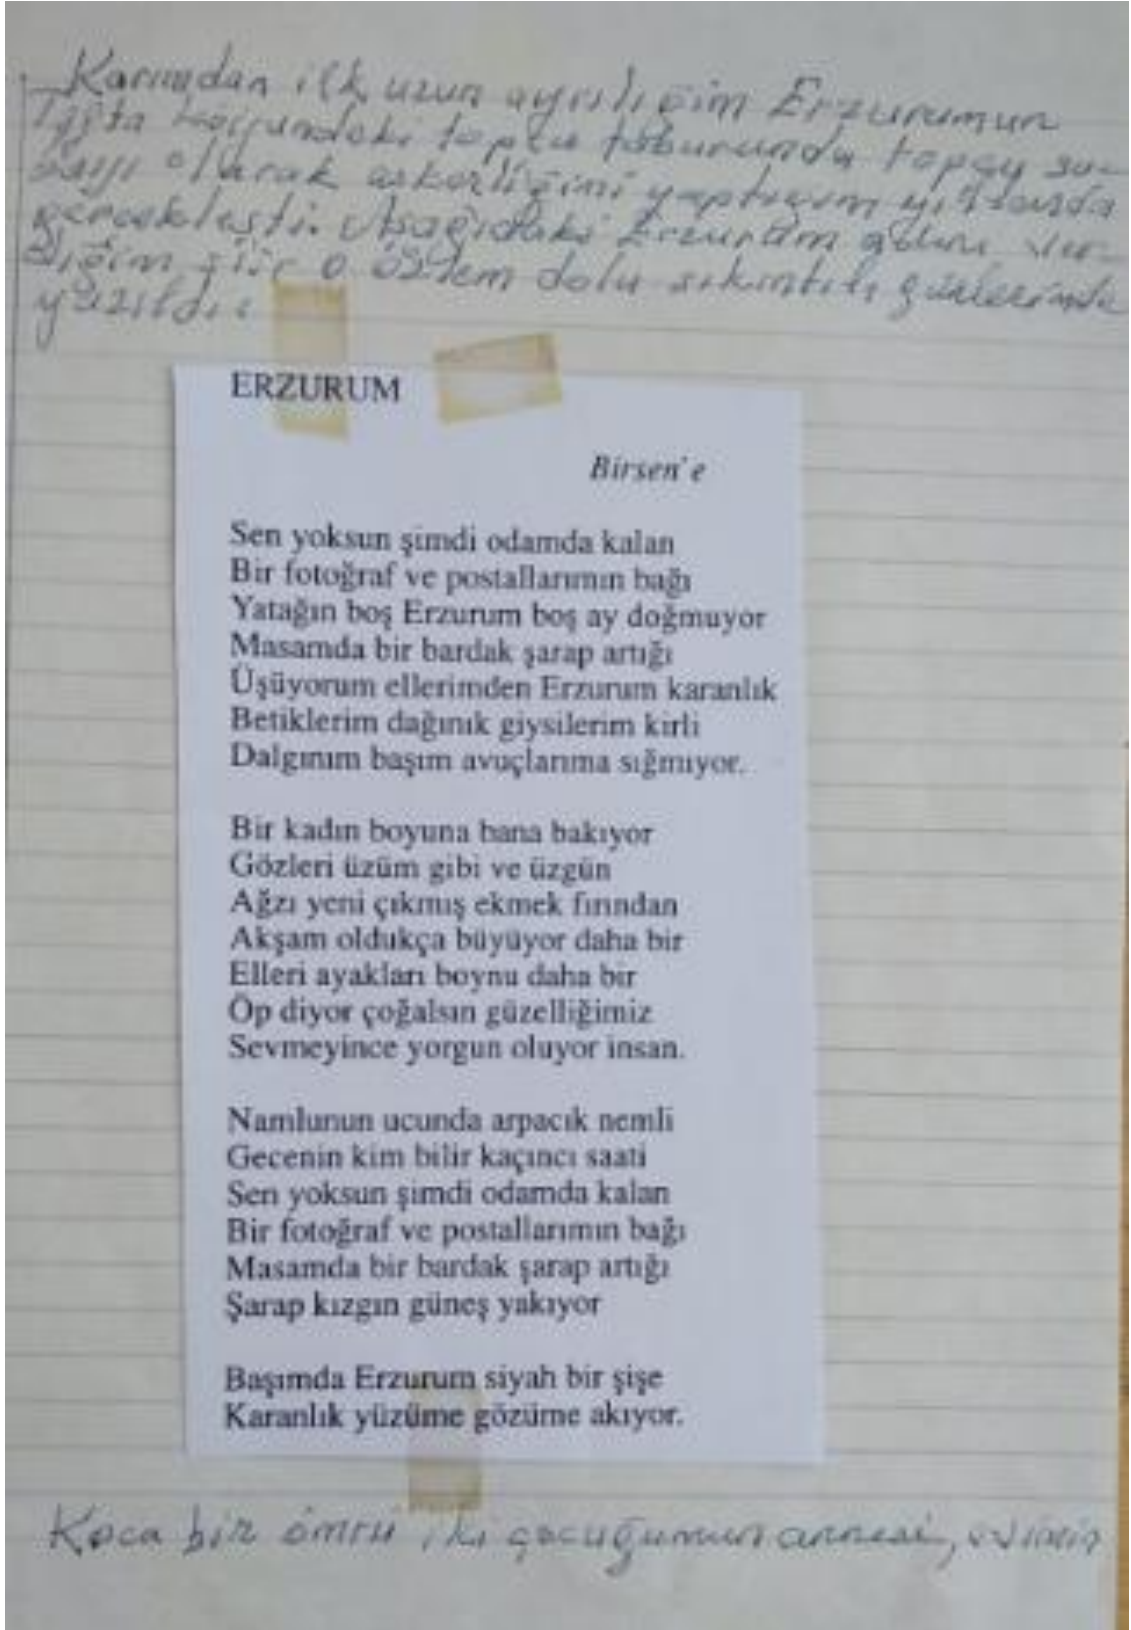 Karımdan ilk uzun ayrılığım Erzurumun
köyündeki topçu taburunda topçu su-
bayı olarak askerliğimi yaptığım yıllarda
gerçekleşti. Aşağıdaki Erzurum adını ver-
diğim şiir o özlem dolu sıkıntılı günlerimde
yazıldı:
ERZURUM
Birsen'e
Sen yoksun şimdi odamda kalan
Bir fotoğraf ve postallarımın bağı
Yatağın boş Erzurum boş ay doğmuyor
Masamda bir bardak şarap artığı
Üşüyorum ellerimden Erzurum karanlık
Betiklerim dağınık giysilerim kirli
Dalgınım başım avuçlarıma sığmıyor.
Bir kadın boyuna bana bakıyor
Gözleri üzüm gibi ve üzgün
Ağzı yeni çıkmış ekmek fırından
Akşam oldukça büyüyor daha bir
Elleri ayakları boynu daha bir
Öp diyor çoğalsın güzelliğimiz
Sevmeyince yorgun oluyor insan.
Namlunun ucunda arpacık nemli
Gecenin kim bilir kaçıncı saati
Sen yoksun şimdi odamda kalan
Bir fotoğraf ve postallarımın bağı
Masamda bir bardak şarap artığı
Şarap kızgın güneş yakıyor
Başımda Erzurum siyah bir şişe
Karanlık yüzüme gözüme akıyor.
Koca bir ömrü iki çocuğumun annesi, evimin